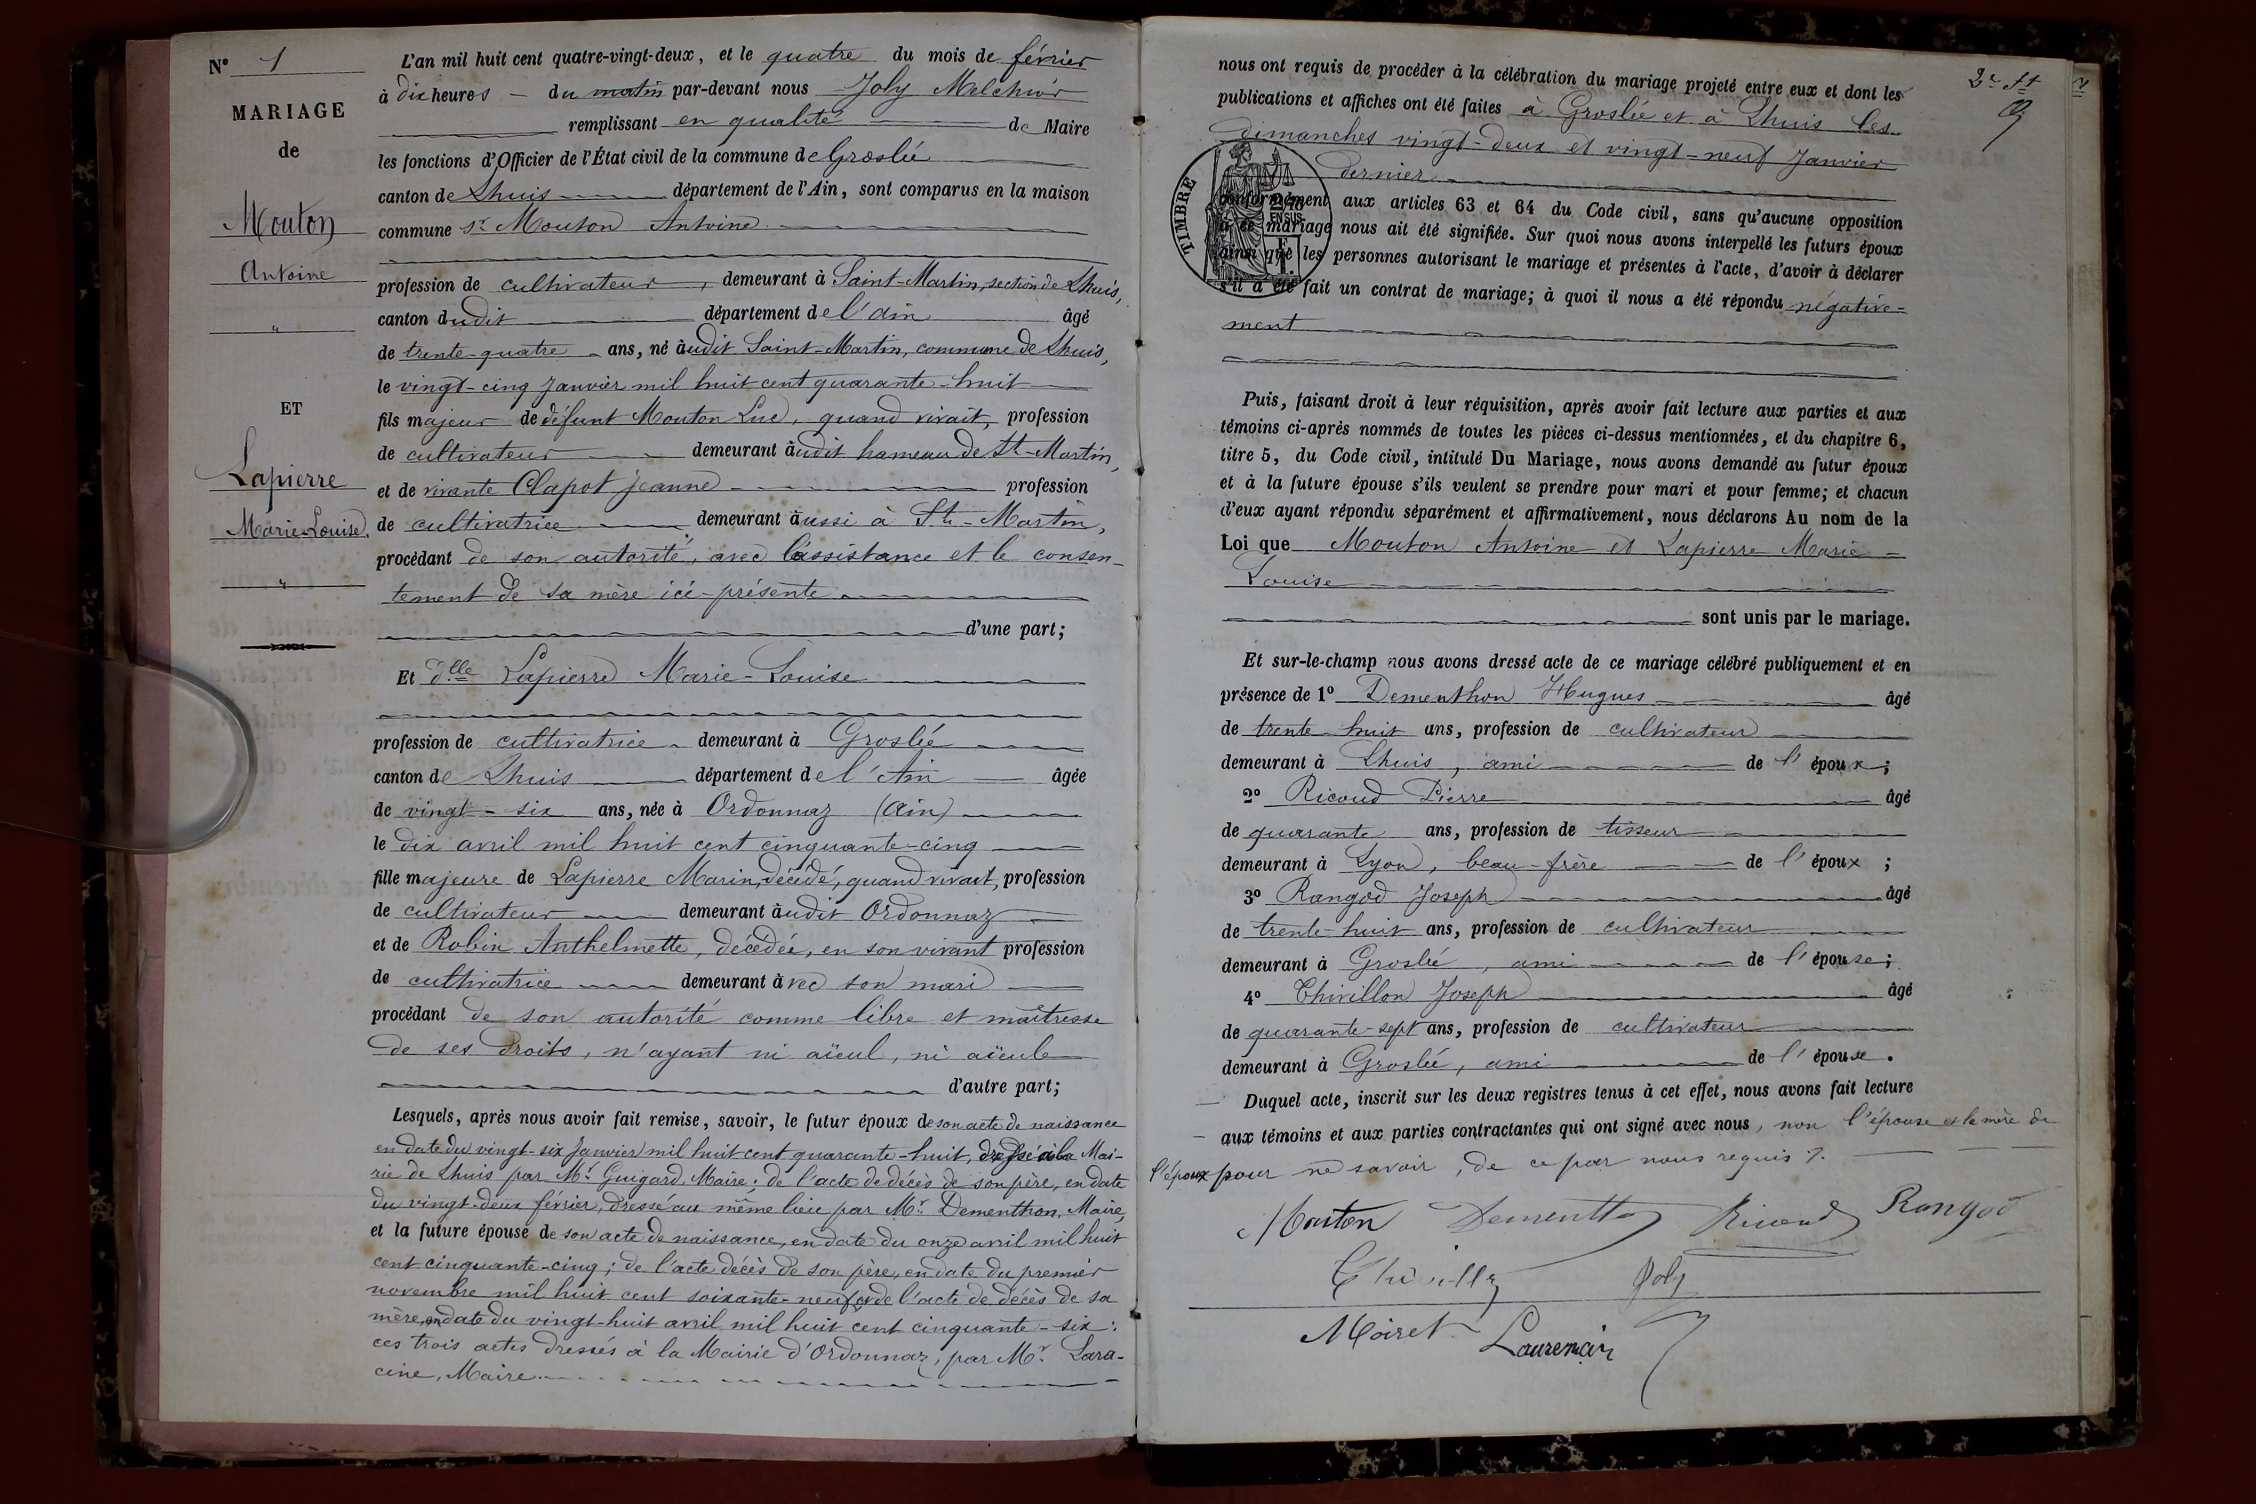 N° 1
MARIAGE
de
Mouton
Antoine
"
ET
Lapierre
Marie-Louise.
"
L'an mil huit cent quatre-vingt-deux, et le quatre du mois de février
à dix heures du matin par-devant nous Joly Melchior
remplissant en qualité de Maire
les fonctions d'Officier de l'État civil de la commune de Groslée
canton de Lhuis département de l'Ain, sont comparus en la maison
commune sr Mouton Antoine
profession de cultivateur, demeurant à Saint-Martin, section de Lhuis,
canton dudit département de l'ain âgé
de trente-quatre ans, né àudit Saint-Martin, commune de Lhuis,
le vingt-cinq Janvier mil huit cent quarante-huit
fils majeur de défunt Mouton Luc, quand vivait, profession
de cultivateur demeurant àudit hameau de St-Martin,
et de vivante Clapot Jeanne profession
de cultivatrice demeurant àussi à St-Martin,
procédant de son autorité, avec l'assistance et le consen-
tement de sa mère ici-présente
d'une part;
Et dlle Lapierre Marie-Louise
profession de cultivatrice demeurant à Groslée
canton de Lhuis département de l'Ain âgée
de vingt-six ans, née à Ordonnaz (Ain)
le dix avril mil huit cent cinquante-cinq
fille majeure de Lapierre Marin, décédé, quand vivait, profession
de cultivateur demeurant àudit Ordonnaz
et de Robin Anthelmette, décédée, en son vivant profession
de cultivatrice demeurant àvec son mari
procédant de son autorité comme libre et maîtresse
de ses droits, n'ayant ni aïeul, ni aïeule
d'autre part;
Lesquels, après nous avoir fait remise, savoir, le futur époux de son acte de naissance
en date du vingt-six Janvier mil huit cent quarante-huit, dressé à la Mai-
rie de Lhuis par Mr Guigard, Maire; de l'acte de décès de son père, en date
du vingt-deux février, dressé au même lieu par Mr Dementhon, Maire,
et la future épouse de son acte de naissance, en date du onze avril mil huit
cent cinquante-cinq; de l'acte décès de son père, en date du premier
novembre mil huit cent soixante-neuf, et de l'acte de décès de sa
mère, en date du vingt-huit avril mil huit cent cinquante-six:
ces trois actes dressés à la Mairie d'Ordonnaz, par Mr Lara-
cine, Maire.
nous ont requis de procéder à la célébration du mariage projeté entre eux et dont les
publications et affiches ont été faites à Groslée et à Lhuis les
dimanches vingt-deux et vingt-neuf Janvier
dernier
conformément aux articles 63 et 64 du Code civil, sans qu'aucune opposition
à ce mariage nous ait été signifiée. Sur quoi nous avons interpellé les futurs époux
ainsi que les personnes autorisant le mariage et présentes à l'acte, d'avoir à déclarer
s'il a été fait un contrat de mariage; à quoi il nous a été répondu négative-
ment
TIMBRE
EN SUS
Puis, faisant droit à leur réquisition, après avoir fait lecture aux parties et aux
témoins ci-après nommés de toutes les pièces ci-dessus mentionnées, et du chapitre 6,
titre 5, du Code civil, intitulé Du Mariage, nous avons demandé au futur époux
et à la future épouse s'ils veulent se prendre pour mari et pour femme; et chacun
d'eux ayant répondu séparément et affirmativement, nous déclarons Au nom de la
Loi que Mouton Antoine et Lapierre Marie-
Louise
sont unis par le mariage.
Et sur-le-champ nous avons dressé acte de ce mariage célébré publiquement et en
présence de 1° Dementhon Hugues âgé
de trente-huit ans, profession de cultivateur
demeurant à Lhuis, ami de l'époux;
2° Ricoud Pierre âgé
de quarante ans, profession de tisseur
demeurant à Lyon, beau-frère de l'époux;
3° Rangod Joseph âgé
de trente-huit ans, profession de cultivateur
demeurant à Groslée, ami de l'épouse;
4° Thivillon Joseph âgé
de quarante-sept ans, profession de cultivateur
demeurant à Groslée, ami de l'épouse.
Duquel acte, inscrit sur les deux registres tenus à cet effet, nous avons fait lecture
aux témoins et aux parties contractantes qui ont signé avec nous, non l'épouse et la mère de
l'époux pour ne savoir, de ce par nous requis.
Mouton Dementhon Ricoud Rangod
Joly
Moiret Laurencin